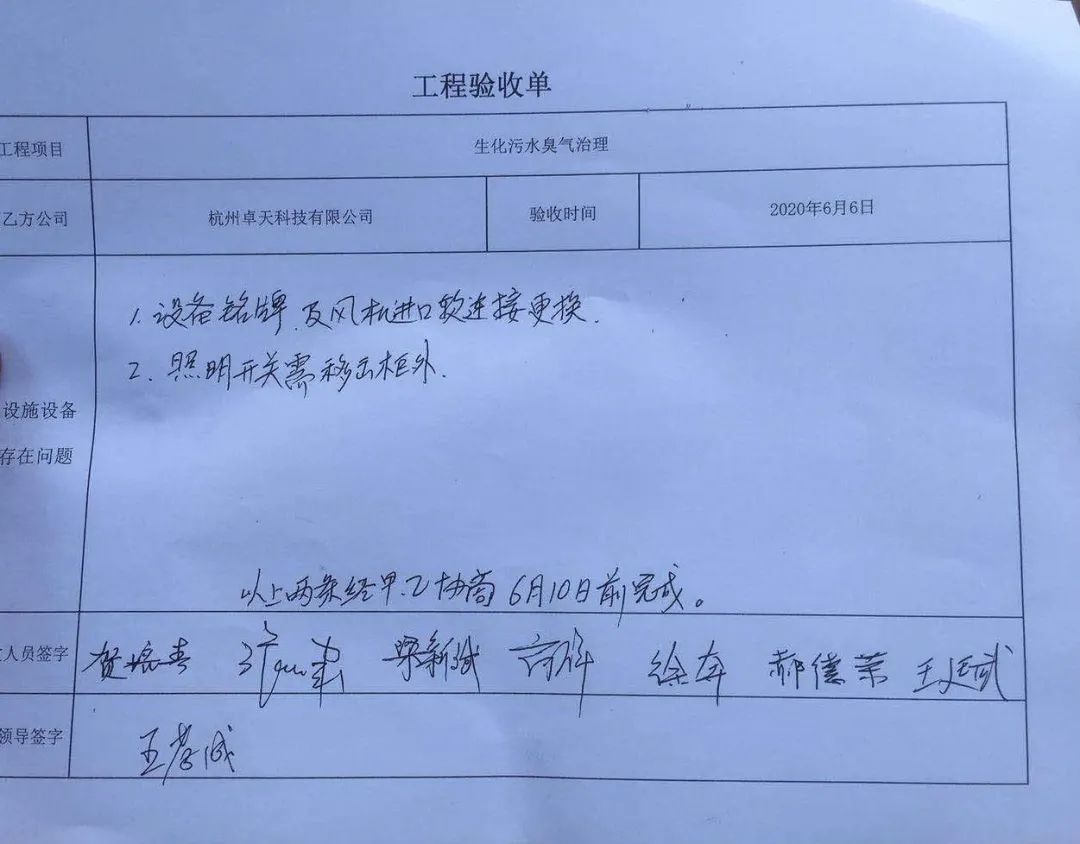 工程验收单
工程项目 生化污水臭气治理
乙方公司 杭州卓天科技有限公司 验收时间 2020年6月6日
1. 设备铭牌、及风机进口软连接更换.
2. 照明开关需移出柜外.
设施设备
存在问题
以上两条经甲.乙协商6月10日前完成。
人员签字 贺培春 梁新斌 徐奔 郝德荣 王延武
领导签字 王孝成